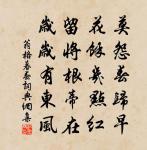 莫怨春歸早
花餘幾點紅
留將根蒂在
歲歲有東風
翁格暮春詞典網集